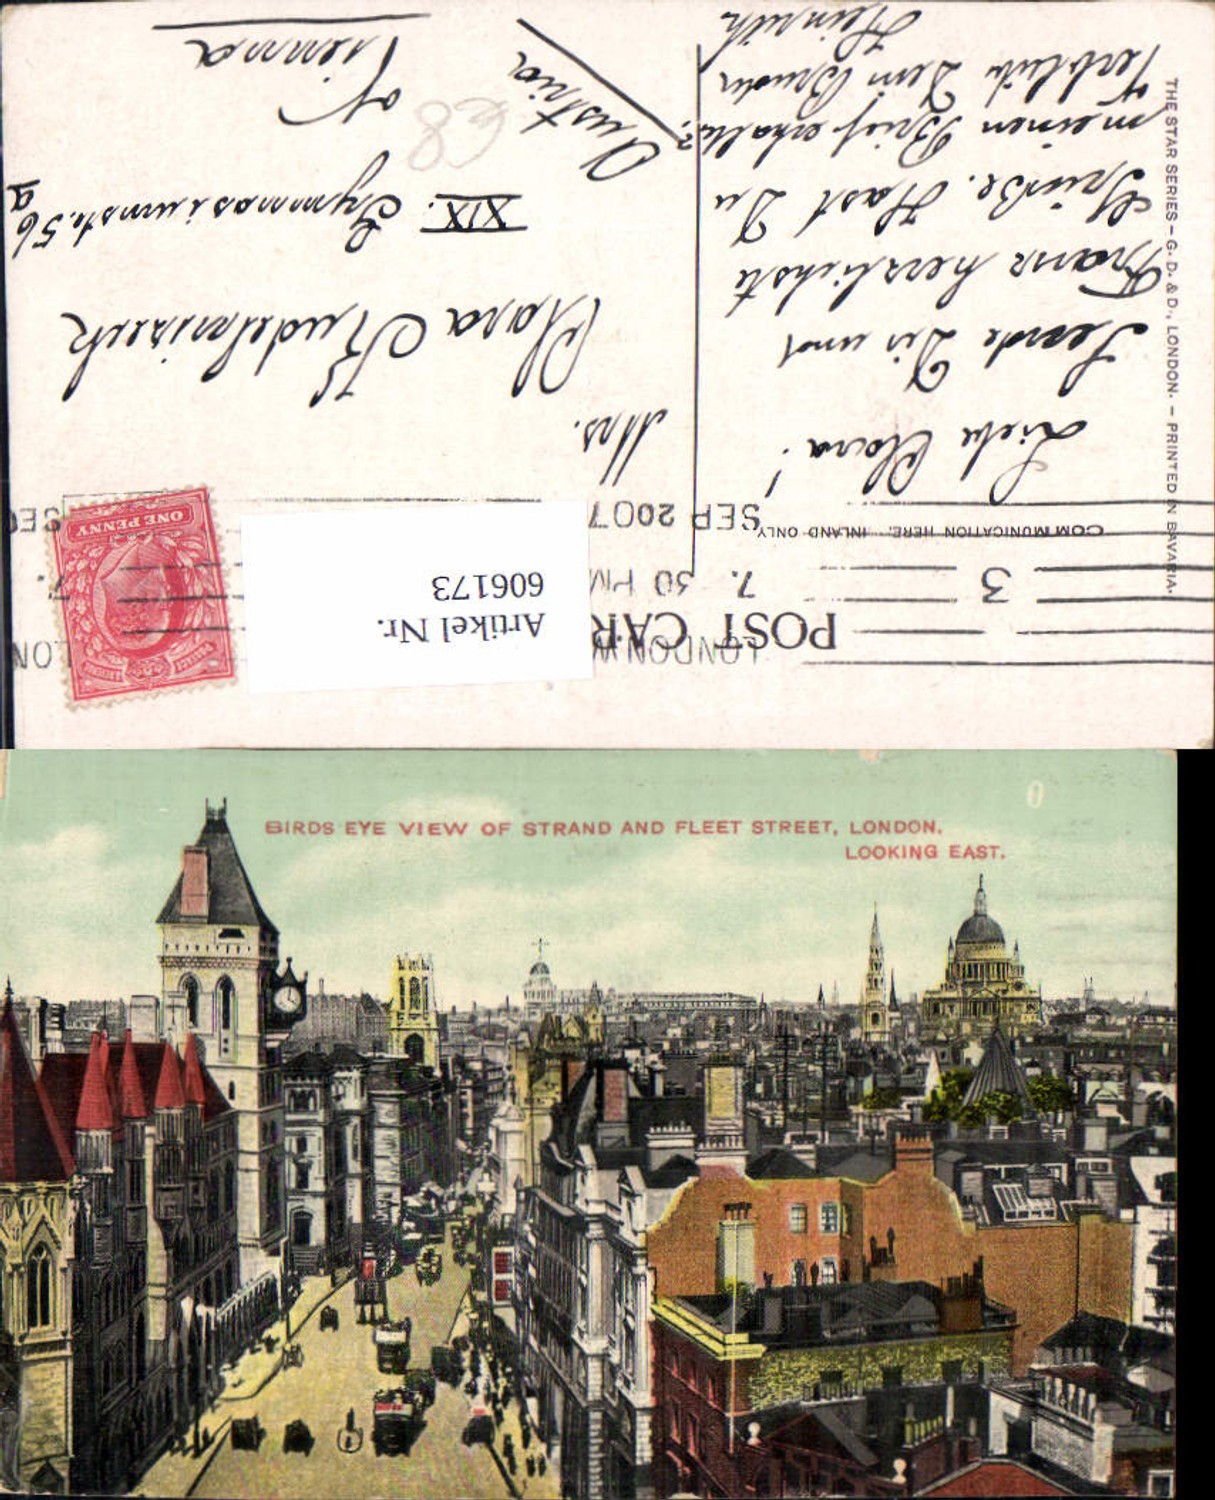 THE STAR SERIES – G. D. & D., LONDON. – PRINTED IN BAVARIA.
POST CAR
COMMUNICATION HERE. INLAND ONLY
LONDON W
7. 30 PM
SEP 20 07
3
ONE PENNY
Artikel Nr.
606173
Liebe Clara!
Sende Dir und
Franz herzlichste
Grüße. Hast Du
meinen Brief erhalten?
Verbleib Dein Bruder
Heinrich
Mrs.
Clara
XIX. Gymnasiumstr. 56
a
Vienna
Austria
68
BIRDS EYE VIEW OF STRAND AND FLEET STREET, LONDON.
LOOKING EAST.